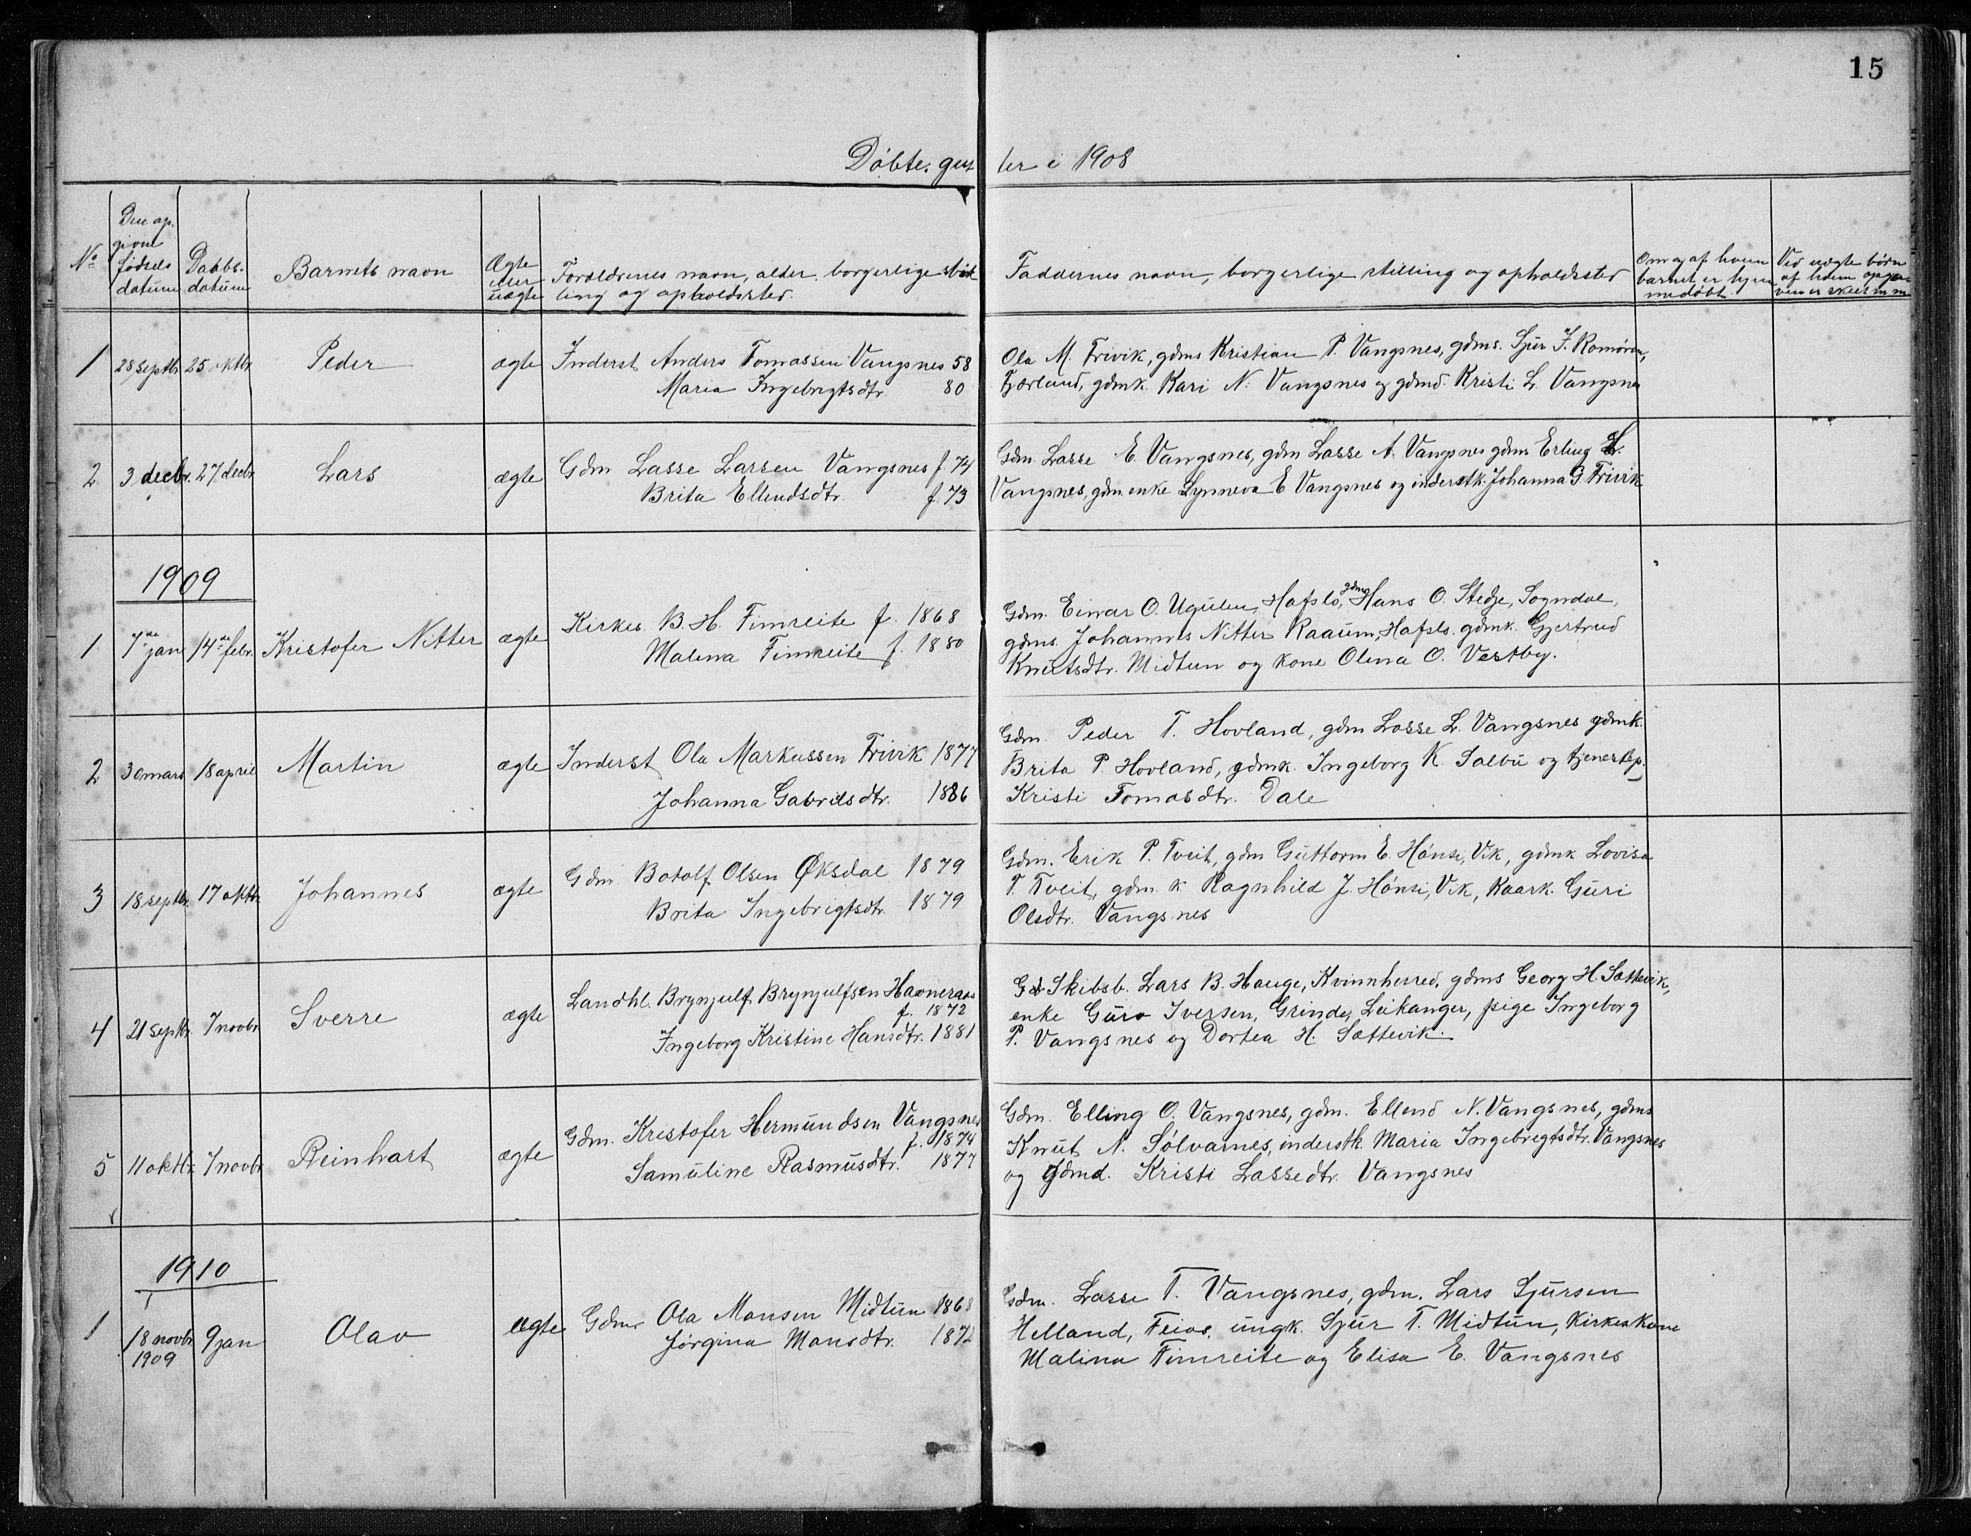 15
Døbte gut ter i 1908
No
Den op-
givne
fødsels
datum
Daabs-
datum
Barnets navn
Ægte
eller
uægte
Forældrenes navn, alder, borgerlige stil
ling og opholdssted.
Faddernes navn, borgerlige stilling og opholdssted
Om og af hvem
barnet er hjem
medøbt
Ved uægte børn
af hvem opga
ven er skeet m m
1 28 septbr 25 oktbr Peder ægte
Inderst Anders Tomassen Vangsnes 58
Maria Ingebrigtsdtr. 80
Ola M. Frivik, gdms Kristian P. Vangsnes, gdms. Sjur J. Romøren,
Fjærland, gdmk. Kari N. Vangsnes og gdmd. Kristi L. Vangsnes
2 3 decbr. 27 decbr Lars ægte
Gdm Lasse Larsen Vangsnes f. 74
Brita Ellendsdtr. f. 73
Gdm. Lasse E. Vangsnes, gdm Lasse A. Vangsnes gdms Erling L.
Vangsnes, gdm. enke Synneva E Vangsnes og inderstk. Johanna G. Frivik
1909
1 7de jan 14de febr. Kristofer Nitter ægte
Kirkes. B. H. Fimreite f. 1868
Malena Fimreite f. 1880
Gdm. Einar O. Ugulen, Hafslo, gdms Hans O. Stedje, Sogndal,
gdms. Johannes Nitter Raaum, Hafslo. gdmk. Gjertrud
Knutsdtr. Midtun og kone Olena O. Vestby.
2 30 mars 18 april Martin ægte
Inderst Ola Markussen Frivik 1877
Johanna Gabrielsdtr. 1886
Gdm. Peder T. Hovland, gdm Lasse L. Vangsnes gdmk.
Brita P. Hovland, gdmk. Ingeborg K. Salbu og tjenestep.
Kristi Tomasdtr. Dale
3 18 septbr. 17 oktbr Johannes ægte
Gdm. Botolf Olsen Øksdal 1879
Brita Ingebrigtsdtr. 1879
Gdm. Erik P. Tveit, gdm Guttorm E. Hønsi, Vik, gdmk Lovisa
P. Tveit, gdm. k Ragnhild J. Hønsi, Vik, Kaark. Guri
Olsdtr. Vangsnes
4 21 septbr 7 novbr Sverre ægte
Landhl. Brynjulf Brynjulfsen Havneraas
f. 1872
Ingeborg Kristine Hansdtr. 1881
Skibsb. Lars B. Hauge, Kvinnherred, gdms Georg H. Sættevik,
enke Guro Iversen, Grinde, Leikanger, pige Ingeborg
P. Vangsnes og Dortea H. Sættevik.
5 11 oktbr. 7 novbr Reinhart ægte
Gdm. Kristofer Hermundsen Vangsnes
f. 1874
Samuline Rasmusdtr. 1877
Gdm. Elling O. Vangsnes, gdm. Ellend N. Vangsnes, gdms
Knut N. Sølvarnes, inderstk. Maria Ingebregtsdtr. Vangsnes
og gdmd. Kristi Lassedtr. Vangsnes
1910
1 18 novbr
1909 9 jan Olav ægte
Gdmr Ola Monsen Midtun 1868
Jørgina Monsdtr. 1872
Gdm. Lasse T. Vangsnes, gdm. Lars Sjursen
Helland, Feios, ungk. Sjur T. Midtun, Kirkes kone
Malina Fimreite og Elisa E. Vangsnes